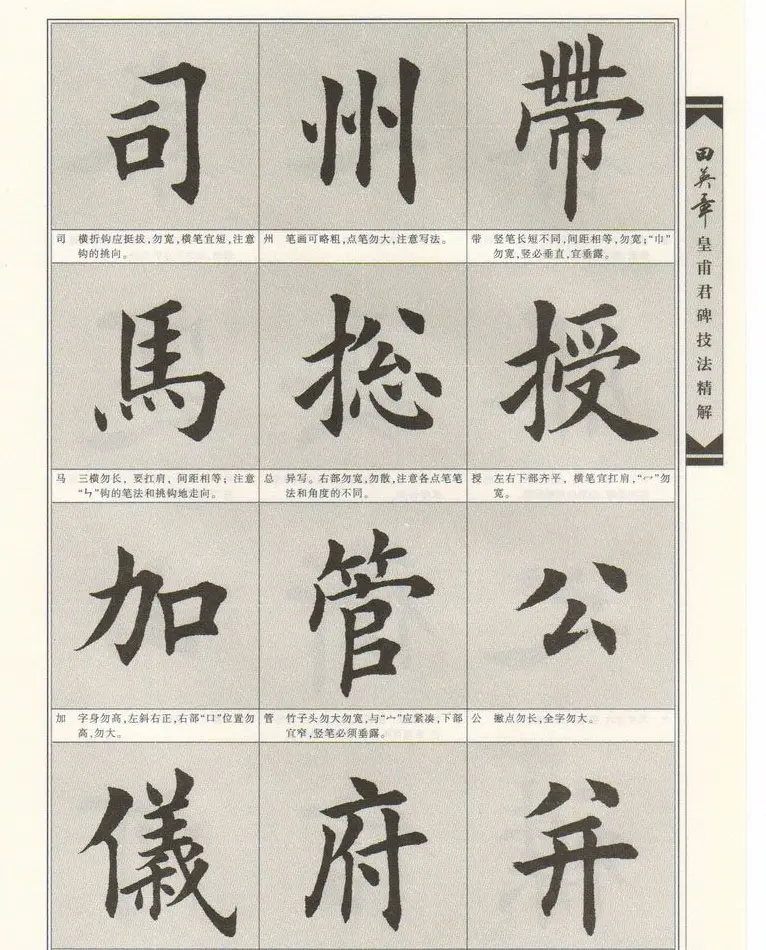 司 州 帶
司 横折钩应挺拔,勿宽,横笔宜短,注意
钩的挑向。
州 笔画可略粗,点笔勿大,注意写法。
带 竖笔长短不同,间距相等,勿宽;“巾”
勿宽,竖必垂直,宜垂露。
馬 捴 授
马 三横勿长,要扛肩,间距相等;注意
“㇉”钩的笔法和挑钩地走向。
总 异写。右部勿宽,勿散,注意各点笔笔
法和角度的不同。
授 左右下部齐平,横笔宜扛肩,“冖”勿
宽。
加 管 公
加 字身勿高,左斜右正,右部“口”位置勿
高,勿大。
管 竹子头勿大勿宽,与“宀”应紧凑,下部
宜窄,竖笔必须垂露。
公 撇点勿长,全字勿大。
儀 府 并
田英章
皇甫君碑技法精解